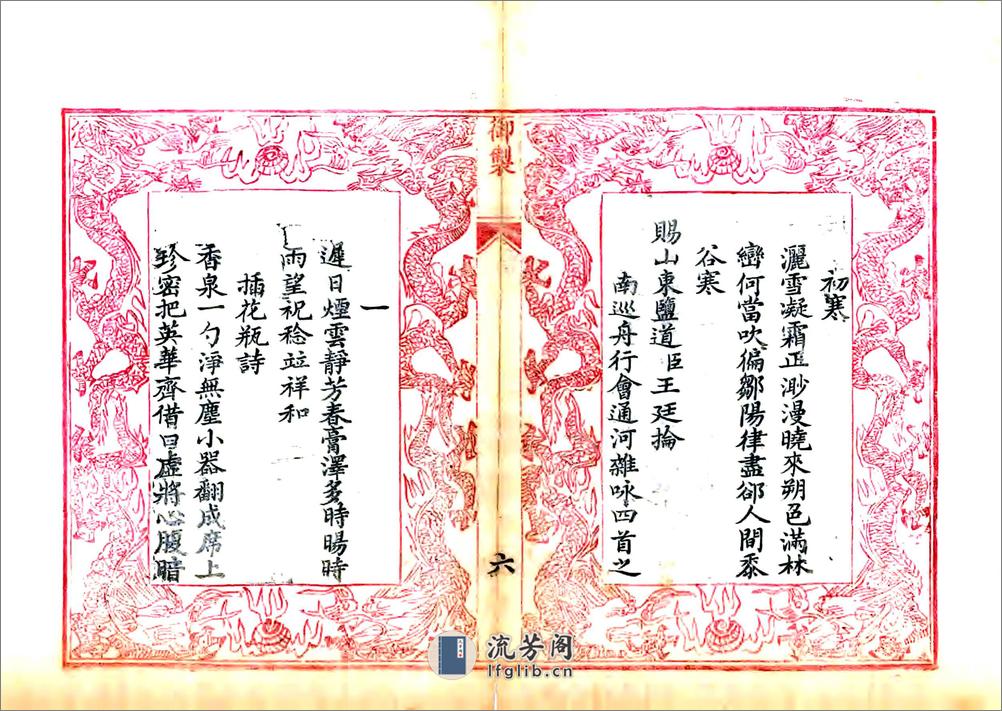 御製
初寒
灑雪凝霜正渺漫曉來朔色滿林
巒何當吹徧鄒陽律盡郤人間黍
谷寒
賜山東鹽道臣王廷掄
南巡舟行會通河雜咏四首之
一
遲日煙雲靜芳春膏澤多時暘時
雨望祝稔竝祥和
插花瓶詩
香泉一勺淨無塵小器翻成席上
珍密把英華齊借日虛將心腹暗
六
流芳阁
lfglib.cn